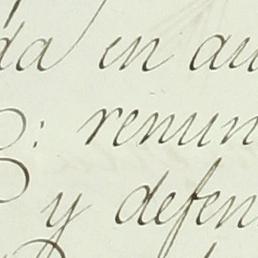 da en au
: renun
y defen